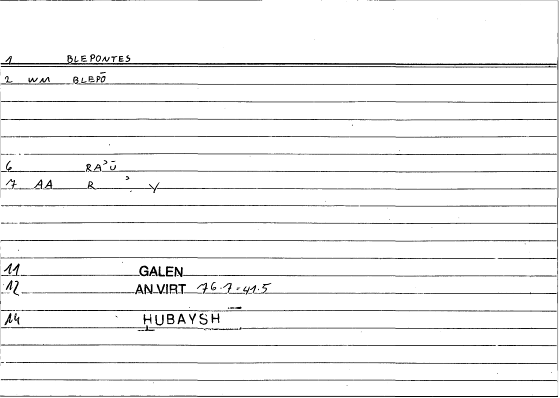 1 BLEPONTES
2 WM BLEPŌ
6 RAʾŪ
7 AA R ʾ Y
11 GALEN
12 AN VIRT 76.7=41.5
14 HUBAYSH